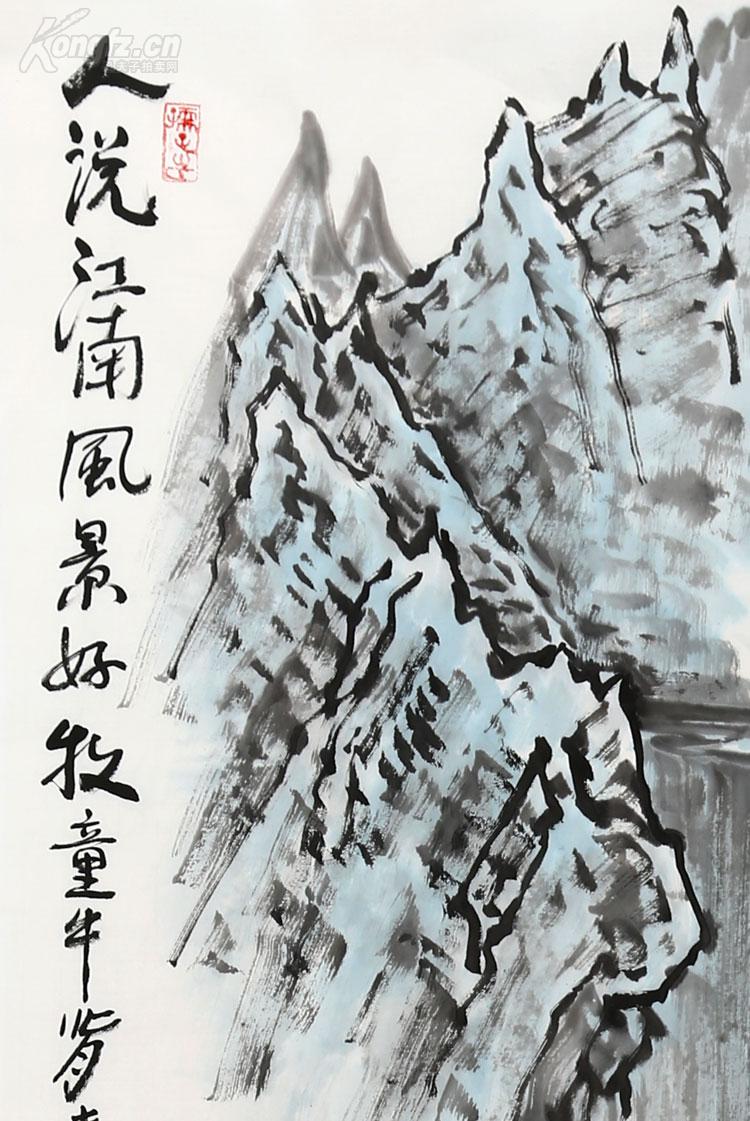 Kongfz.cn
孔夫子拍卖网
人说江南風景好牧童牛背